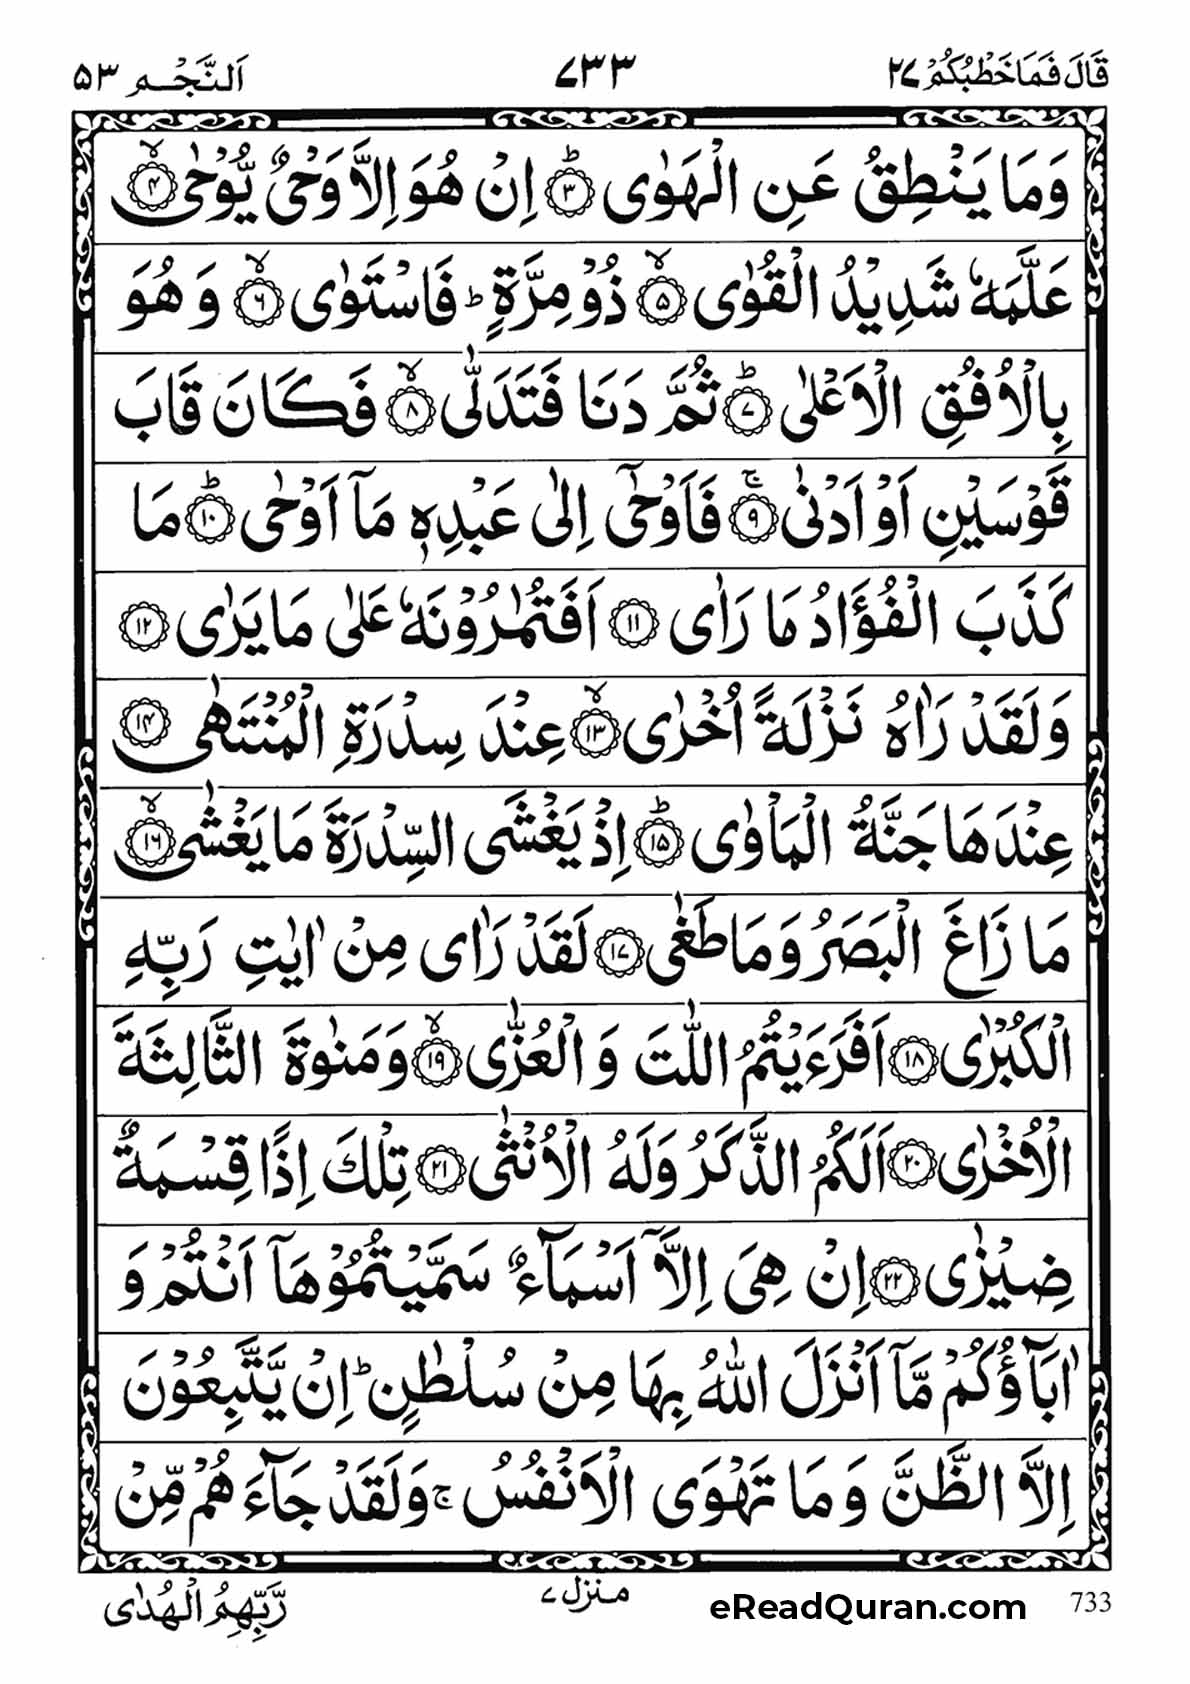 قَالَ فَمَا خَطْبُكُمْ ٢٧ ٧٣٣ اَلنَّجْم ٥٣
وَمَا يَنْطِقُ عَنِ الْهَوٰى ؕ﴿۳﴾ اِنْ هُوَ اِلَّا وَحْىٌ يُّوْحٰى ۙ﴿۴﴾
عَلَّمَهٗ شَدِيْدُ الْقُوٰى ۙ﴿۵﴾ ذُوْ مِرَّةٍ ؕ فَاسْتَوٰى ۙ﴿۶﴾ وَهُوَ
بِالْاُفُقِ الْاَعْلٰى ؕ﴿۷﴾ ثُمَّ دَنَا فَتَدَلّٰى ۙ﴿۸﴾ فَكَانَ قَابَ
قَوْسَيْنِ اَوْ اَدْنٰى ۚ﴿۹﴾ فَاَوْحٰٓى اِلٰى عَبْدِهٖ مَاۤ اَوْحٰى ؕ﴿۱۰﴾ مَا
كَذَبَ الْفُؤَادُ مَا رَاٰى ﴿۱۱﴾ اَفَتُمٰرُوْنَهٗ عَلٰى مَا يَرٰى ﴿۱۲﴾
وَلَقَدْ رَاٰهُ نَزْلَةً اُخْرٰى ۙ﴿۱۳﴾ عِنْدَ سِدْرَةِ الْمُنْتَهٰى ﴿۱۴﴾
عِنْدَهَا جَنَّةُ الْمَاْوٰى ؕ﴿۱۵﴾ اِذْ يَغْشَى السِّدْرَةَ مَا يَغْشٰى ۙ﴿۱۶﴾
مَا زَاغَ الْبَصَرُ وَمَا طَغٰى ﴿۱۷﴾ لَقَدْ رَاٰى مِنْ اٰيٰتِ رَبِّهِ
الْكُبْرٰى ﴿۱۸﴾ اَفَرَءَيْتُمُ اللّٰتَ وَ الْعُزّٰى ۙ﴿۱۹﴾ وَمَنٰوةَ الثَّالِثَةَ
الْاُخْرٰى ﴿۲۰﴾ اَلَكُمُ الذَّكَرُ وَلَهُ الْاُنْثٰى ﴿۲۱﴾ تِلْكَ اِذًا قِسْمَةٌ
ضِيْزٰى ﴿۲۲﴾ اِنْ هِىَ اِلَّاۤ اَسْمَآءٌ سَمَّيْتُمُوْهَاۤ اَنْتُمْ وَ
اٰبَآؤُكُمْ مَّاۤ اَنْزَلَ اللّٰهُ بِهَا مِنْ سُلْطٰنٍ ؕ اِنْ يَّتَّبِعُوْنَ
اِلَّا الظَّنَّ وَ مَا تَهْوَى الْاَنْفُسُ ۚ وَلَقَدْ جَآءَ هُمْ مِّنْ
رَّبِّهِمُ الْهُدٰى
منزل ٧
eReadQuran.com 733